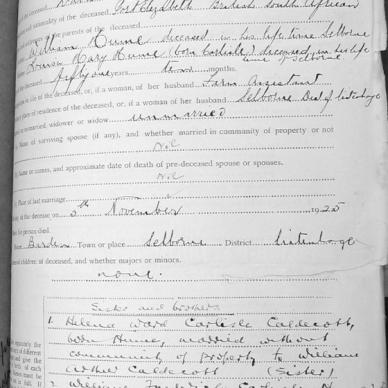 nationality of the deceased, Port Elizabeth British South African
the parents of the deceased
William Hume deceased in his life time Selborne
Louisa Mary Hume (born Carlisle) deceased, in her life
time of Selborne
fifty one years ten months.
in life of the deceased, or, if a woman, of her husband Farm Assistant
place of residence of the deceased, or, if a woman, of her husband Selborne
or unmarried, widower or widow unmarried
Name of surviving spouse (if any), and whether married in community of property or not
Nil
Name or names, and approximate date of death of pre-deceased spouse or spouses.
Nil
Place of last marriage
of the decease on 5th November 1925
the person died.
Town or place Selborne District
children, if deceased, and whether majors or minors.
none.
Sister and brothers
1. Helena Ward Carlisle Caldecott,
born Hume, married without
community of property to William
Arthur Caldecott (Sister)
2. William Frederick Carlisle